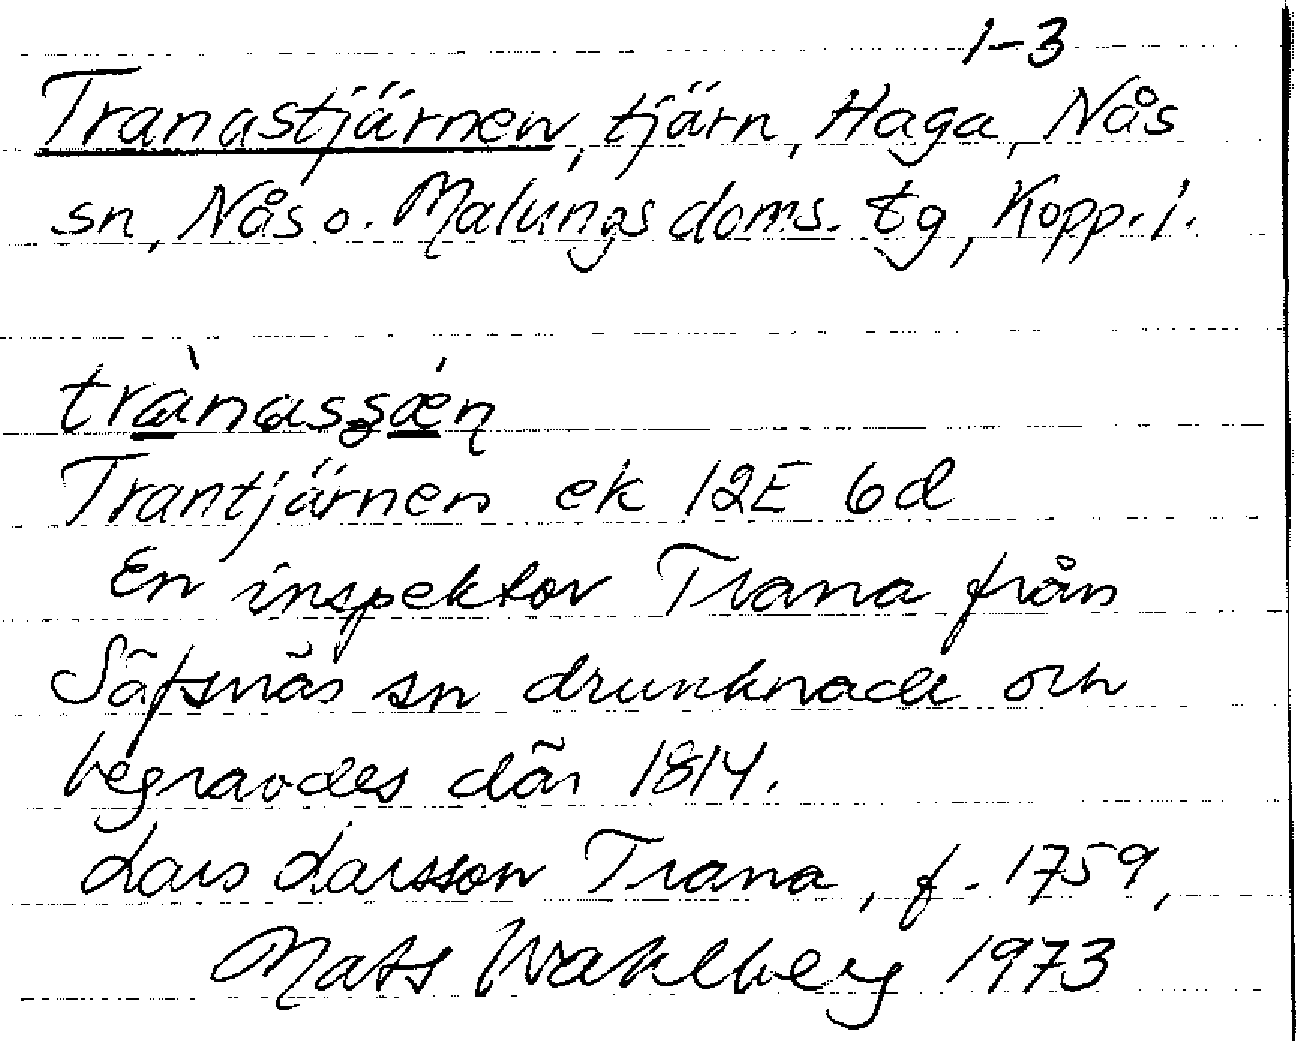 1-3
Tranastjärnen, tjärn, Haga, Nås
sn, Nås o. Malungs doms. tg, Kopp. l.
Trantjärnen ek 12E 6d
En inspektor Trana från
Säfsnäs sn drunknade och
begravdes där 1814.
Lars Larsson Trana, f. 1759,
Mats Wahlberg 1973